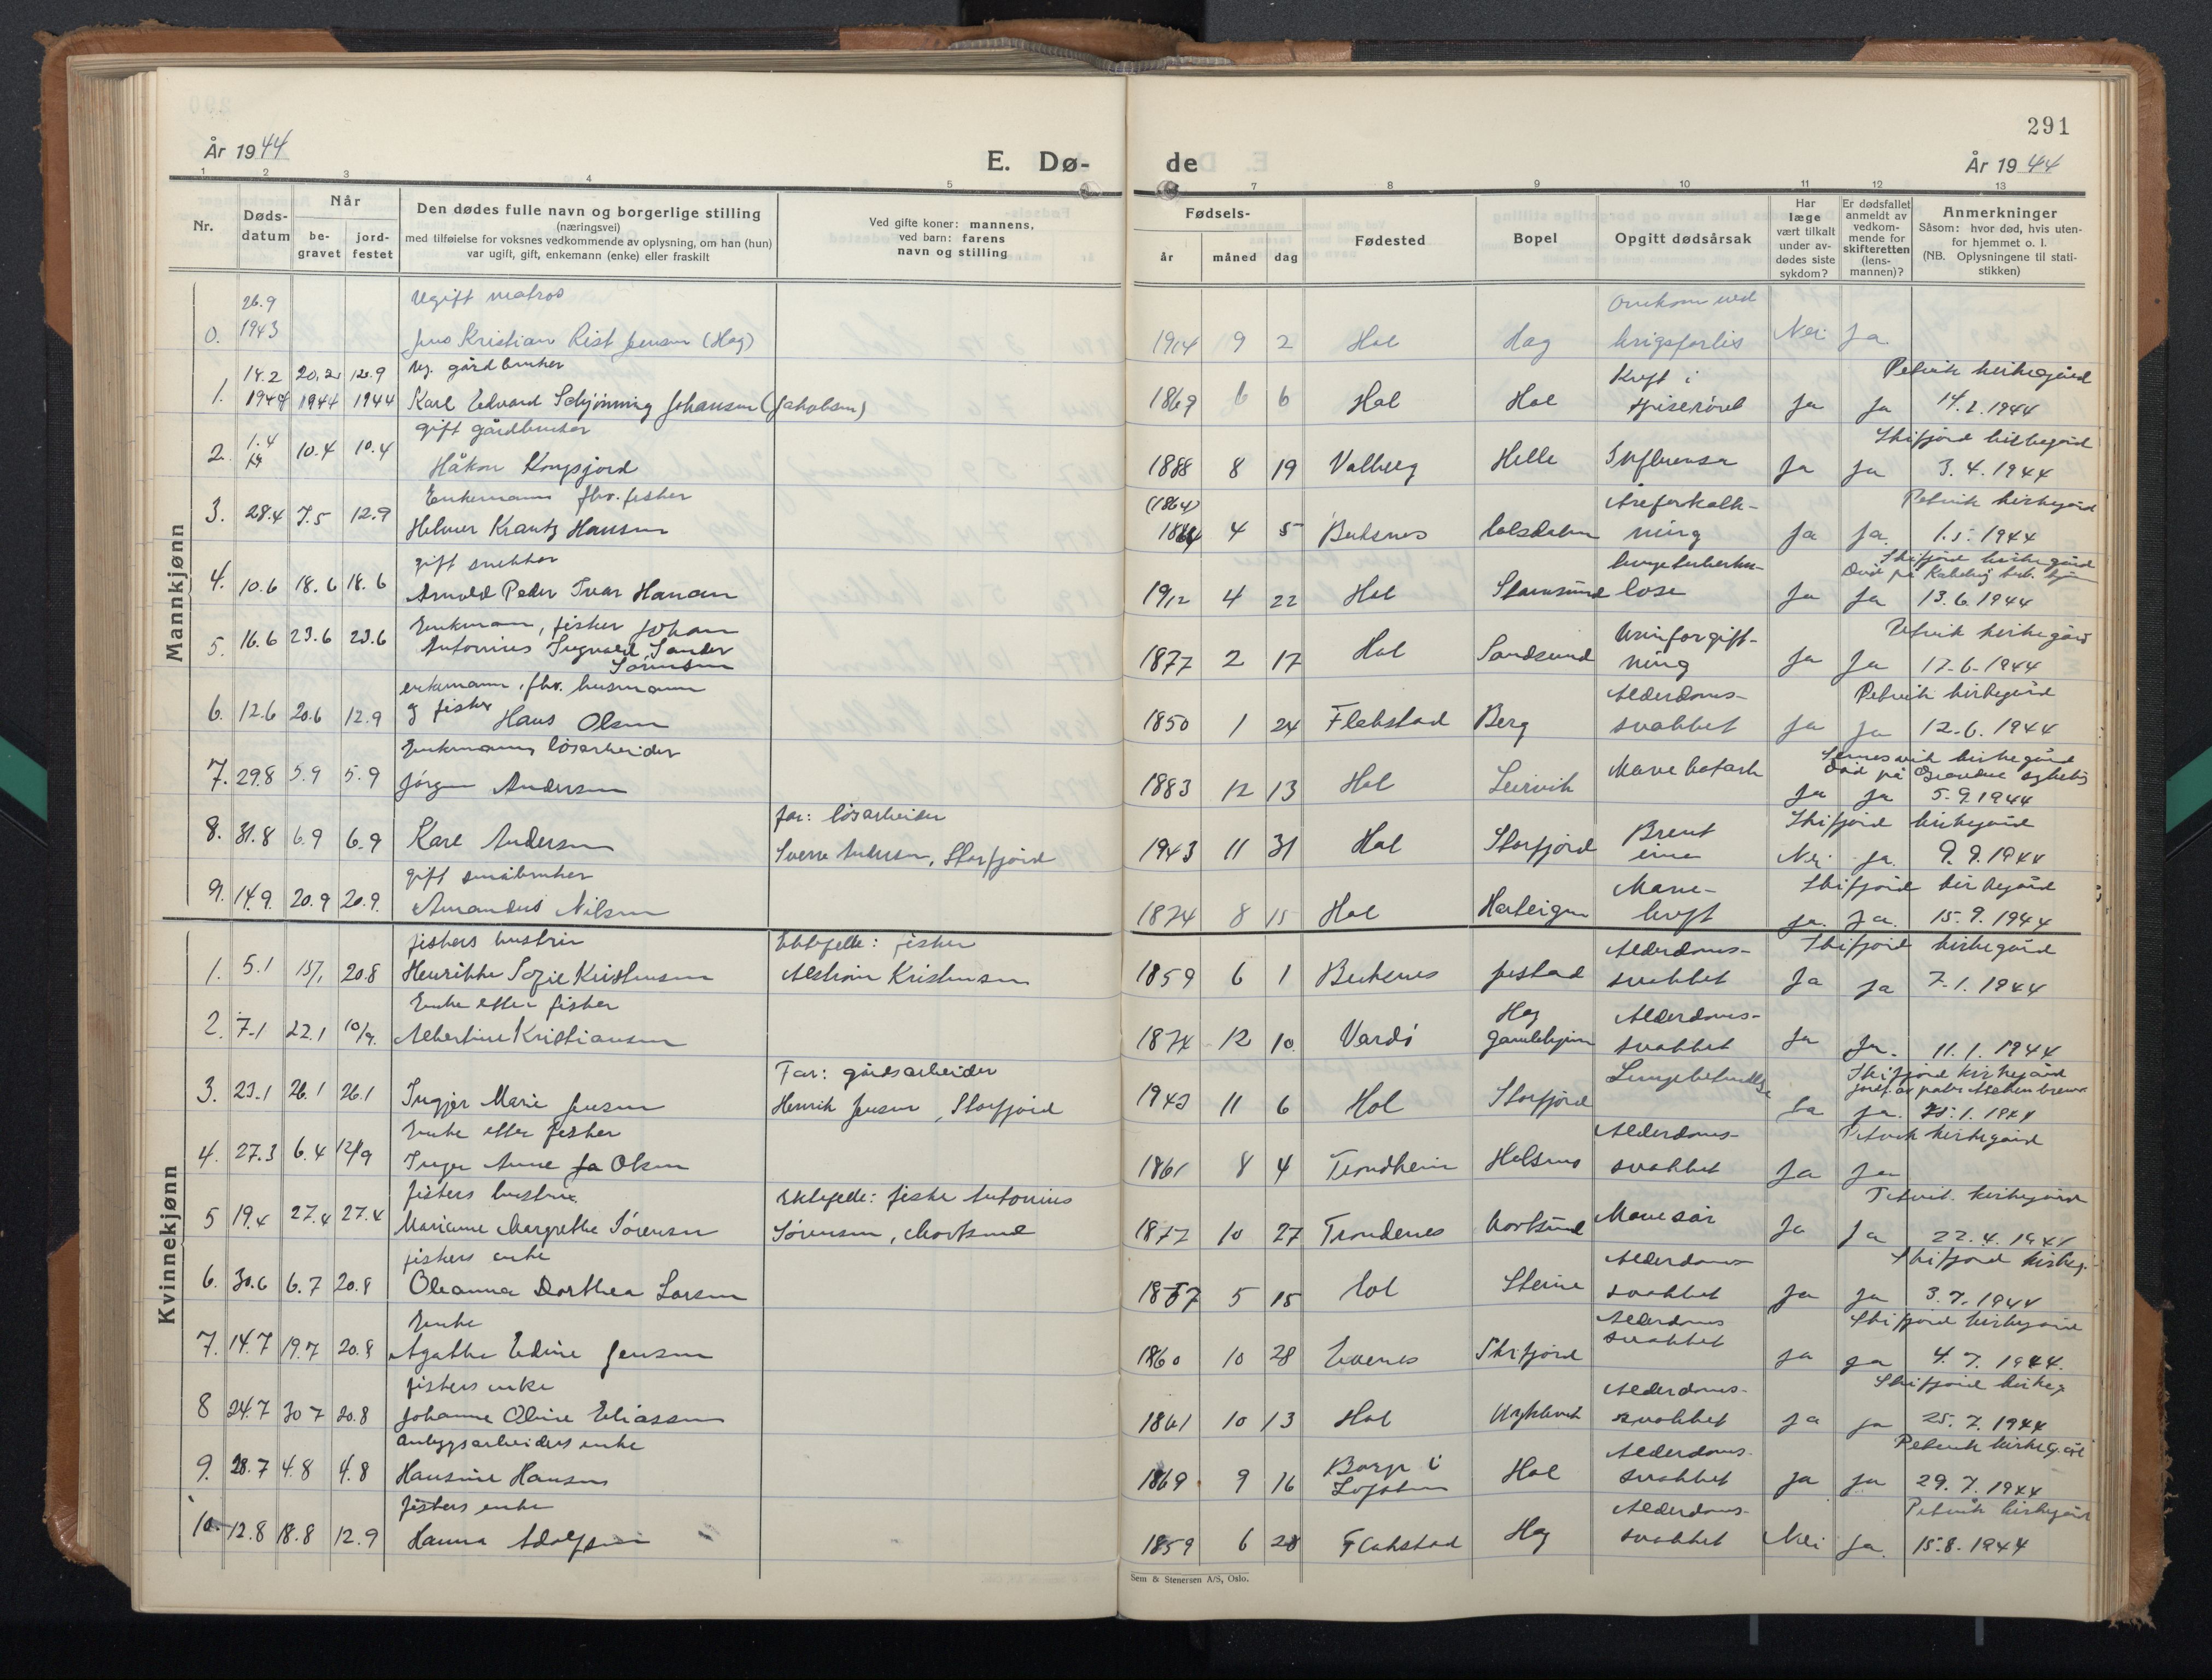 291
År 1944
E. Dø-
de
År 1944
1 2 3 4 5
7 8 9 10 11 12 13
Nr.
Døds-
datum
Når
be-
gravet
jord-
festet
Den dødes fulle navn og borgerlige stilling
(næringsvei)
med tilføielse for voksnes vedkommende av oplysning, om han (hun)
var ugift, gift, enkemann (enke) eller fraskilt
Ved gifte koner: mannens,
ved barn: farens
navn og stilling
Fødsels-
år måned dag
Fødested
Bopel
Opgitt dødsårsak
Har
læge
vært tilkalt
under av-
dødes siste
sykdom?
Er dødsfallet
anmeldt av
vedkom-
mende for
skifteretten
(lens-
mannen)?
Anmerkninger
Såsom: hvor død, hvis uten-
for hjemmet o. l.
(NB. Oplysningene til stati-
stikken)
Mannkjønn
26.9 Ugift matros Omkom ved
0. 1943 Jens Kristian Rist Jensen (Hag) 1914 9 2 Hol Hag krigsforlis Nei Ja.
14.2 20.2 12.9 Ug. gårdbruker Kreft i Petvik kirkegård
1. 1944 1944 1944 Karl Edvard Schjönning Johansen (Jakobsen) 1869 6 6 Hol Hol spiserøret Ja Ja 14.2.1944
1.4 gift gårdbruker Skifjord kirkegård
2. 10.4 10.4 Håkon Kongsjord 1888 8 19 Valberg Helle Influensa Ja Ja 3.4.1944
Enkemann fhv. fisker (1864) Åreforkalk- Petvik kirkegård
3. 28.4 7.5 12.9 Helmer Krantz Hansen 4 5 Buksnes ning Ja Ja. 1.5.1944
gift snekker lungetuberku- Skifjord kirkegård
4. 10.6 18.6 18.6 Arnold Peder Ivar Hansen 1912 4 22 Hol Stamsund lose Ja Ja 13.6.1944
Enkemann, fisker Johan Urinforgift- Petvik kirkegård
5. 16.6 23.6 23.6 Antonius Ingvald Sander 1877 2 17 Hol Sandsund ning Ja Ja 17.6.1944
Sörensen
enkemann, fhv. husmann Alderdoms- Petvik kirkegård
6. 12.6 20.6 12.9 og fisker Hans Olsen 1850 1 24 Flakstad Berg svakhet Ja Ja 12.6.1944
Enkemann, lösarbeider kirkegård
7. 29.8 5.9 5.9 Jörgen Andersen 1883 12 13 Hol Leirvik Mavekatarh Ja Ja 5.9.1944
far: lösarbeider Skifjord kirkegård
8. 31.8 6.9 6.9 Karl Andersen Sverre Andersen, Storfjord 1943 11 31 Hol Storfjord Brent inne Nei Ja. 9.9.1944
gift småbruker Mave- Skifjord kirkegård
9. 14.9. 20.9 20.9. Amandus Nilsen 1874 8 15 Hol kreft Ja. Ja. 15.9.1944
Kvinnekjønn
fiskers hustru Ektefelle: fisker Alderdoms- Skifjord kirkegård
1. 5.1 15/1 20.8 Henrikke Sofie Kristensen Kristensen 1859 6 1 Buksnes Jestad svakhet Ja Ja 7.1.1944
Enke etter fisker Hag Alderdoms-
2. 7.1 22.1 10/9. Albertine Kristiansen 1874 12 10. Vardö Gamlehjem svakhet Ja Ja. 11.1.1944
Far: gårdsarbeider Skifjord kirkegård
3. 23.1 26.1 26.1 Ingjer Marie Jensen Henrik Jensen, Storfjord 1943 11 6 Hol Storfjord Lungebetendelse Ja Ja. 25.1.1944
Enke etter fisker Alderdoms- Petvik kirkegård
4. 27.3 6.4 12/9 Inger Anne Olsen 1861 8 4 Trondheim Holsnes svakhet Ja Ja
fiskers hustru Ektefelle: fisker Antonius Petvik kirkegård
5 19.4 27.4 27.4 Marianne Margrethe Sörensen Sörensen, Mortsund 1877 10 27 Trondenes Mortsund Mavesår Ja Ja 22.4.1944
fiskers enke Alderdoms- Skifjord kirkeg.
6. 30.6 6.7 20.8 Oleanna Dorthea Larsen 1857 5 15 Hol Steine svakhet Ja Ja 3.7.1944
Enke Alderdoms Skifjord kirkegård
7. 14.7 19.7 20.8 Agathe Edine Jensen 1860 10 28 Evenes Skifjord svakhet Ja Ja 4.7.1944.
fiskers enke Alderdoms- Skifjord kirkeg.
8 24.7 30.7 20.8 Johanne Oline Eliassen 1861 10 13 Hol svakhet Ja Ja 25.7.1944
anleggsarbeiders enke Alderdoms- Petvik kirkeg.
9. 28.7 4.8 4.8 Hansine Hansen 1869 9 16 Borge i Lofoten Hol svakhet Ja Ja 29.7.1944
fiskers enke Alderdoms- Petvik kirkegård
10. 12.8 18.8 12.9 Hanna Adolfsen 1859 6 28 Flakstad Hag svakhet Nei Ja. 15.8.1944
Sem & Stenersen A/S, Oslo.